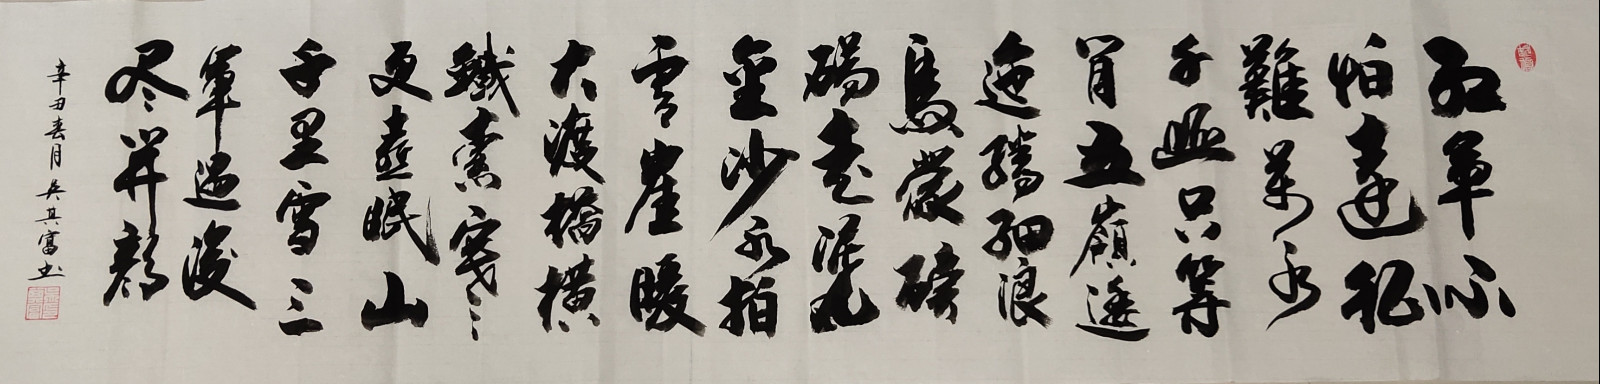 红軍不
怕遠征
難萬水
千山只等
闲五嶺逶
迤腾细浪
烏蒙磅
礴走泥丸
金沙水拍
雲崖暖
大渡橋横
鐵索寒〻
更喜岷山
千里雪三
軍过後
尽开颜
辛丑春月吴其富书